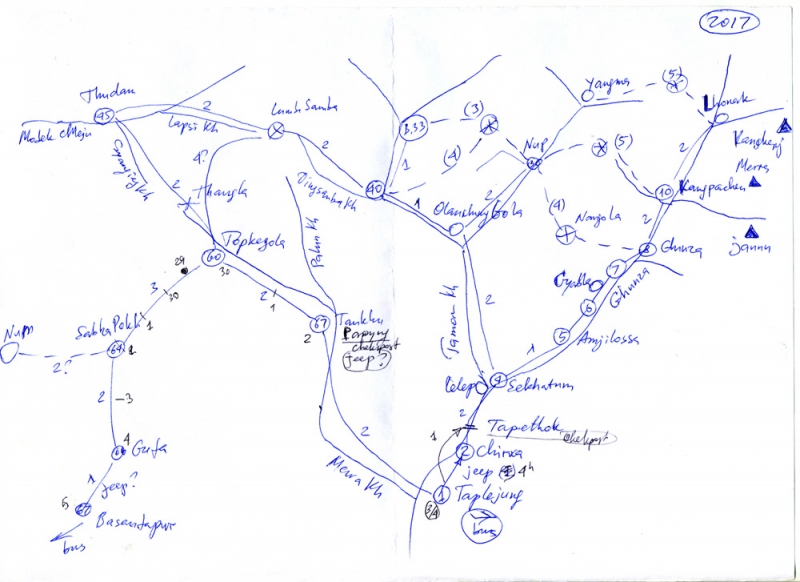 2017
Thudan
45
2
Lumba Samba
Lapsi Kh
Syanjing Kh
4?
2
Dingsamba Kh
40
B.33
(3)
1
(4)
1
Yangma
(5)
Lhonak
2
Kangkenj
Merra
Nup
(5)
10
Kangpachen
Jannu
2
(4)
Nangola
2
8
Ghunza
Olanchung Gola
2
Thangla
2
Palun Kh
Topkegola
60
29
30
30
3
1
2
1
Tamor Kh
2
7
Gyabla
Ghunza
6
5
Amjilossa
1
Num
2?
Sabha Pokh
64
1
67
2
jeep?
chekpost
2
3
Lelep
Sekhatum
2
Tapethok
chekpost
1
4
Gufa
1
jeep?
5
Basantapur
bus
2
Mewa Kh
2
Chirwa
jeep
4h
1
Taplejung
3/4
bus